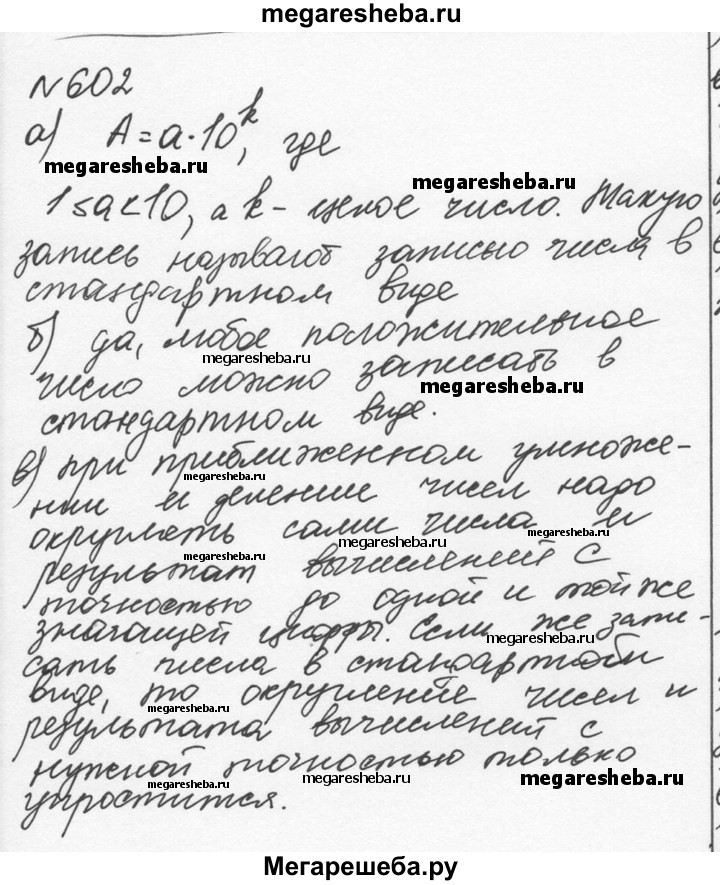 megaresheba.ru
№602
а) A=a·10^k, где
megaresheba.ru
megaresheba.ru
1≤a<10, а k - целое число. Такую
запись называют записью числа в
стандартном виде
б) да, любое положительное
megaresheba.ru
число можно записать в
megaresheba.ru
стандартном виде.
в) при приближенном умноже-
megaresheba.ru
нии и деление чисел надо
округлять сами числа и
megaresheba.ru
megaresheba.ru
megaresheba.ru
результат вычислений с
точностью до одной и той же
значащей цифры. Если же запи-
megaresheba.ru
сать числа в стандартном
виде, то округление чисел и
megaresheba.ru
результата вычислений с
нужной точностью только
megaresheba.ru
megaresheba.ru
упростится.
Мегарешеба.ру